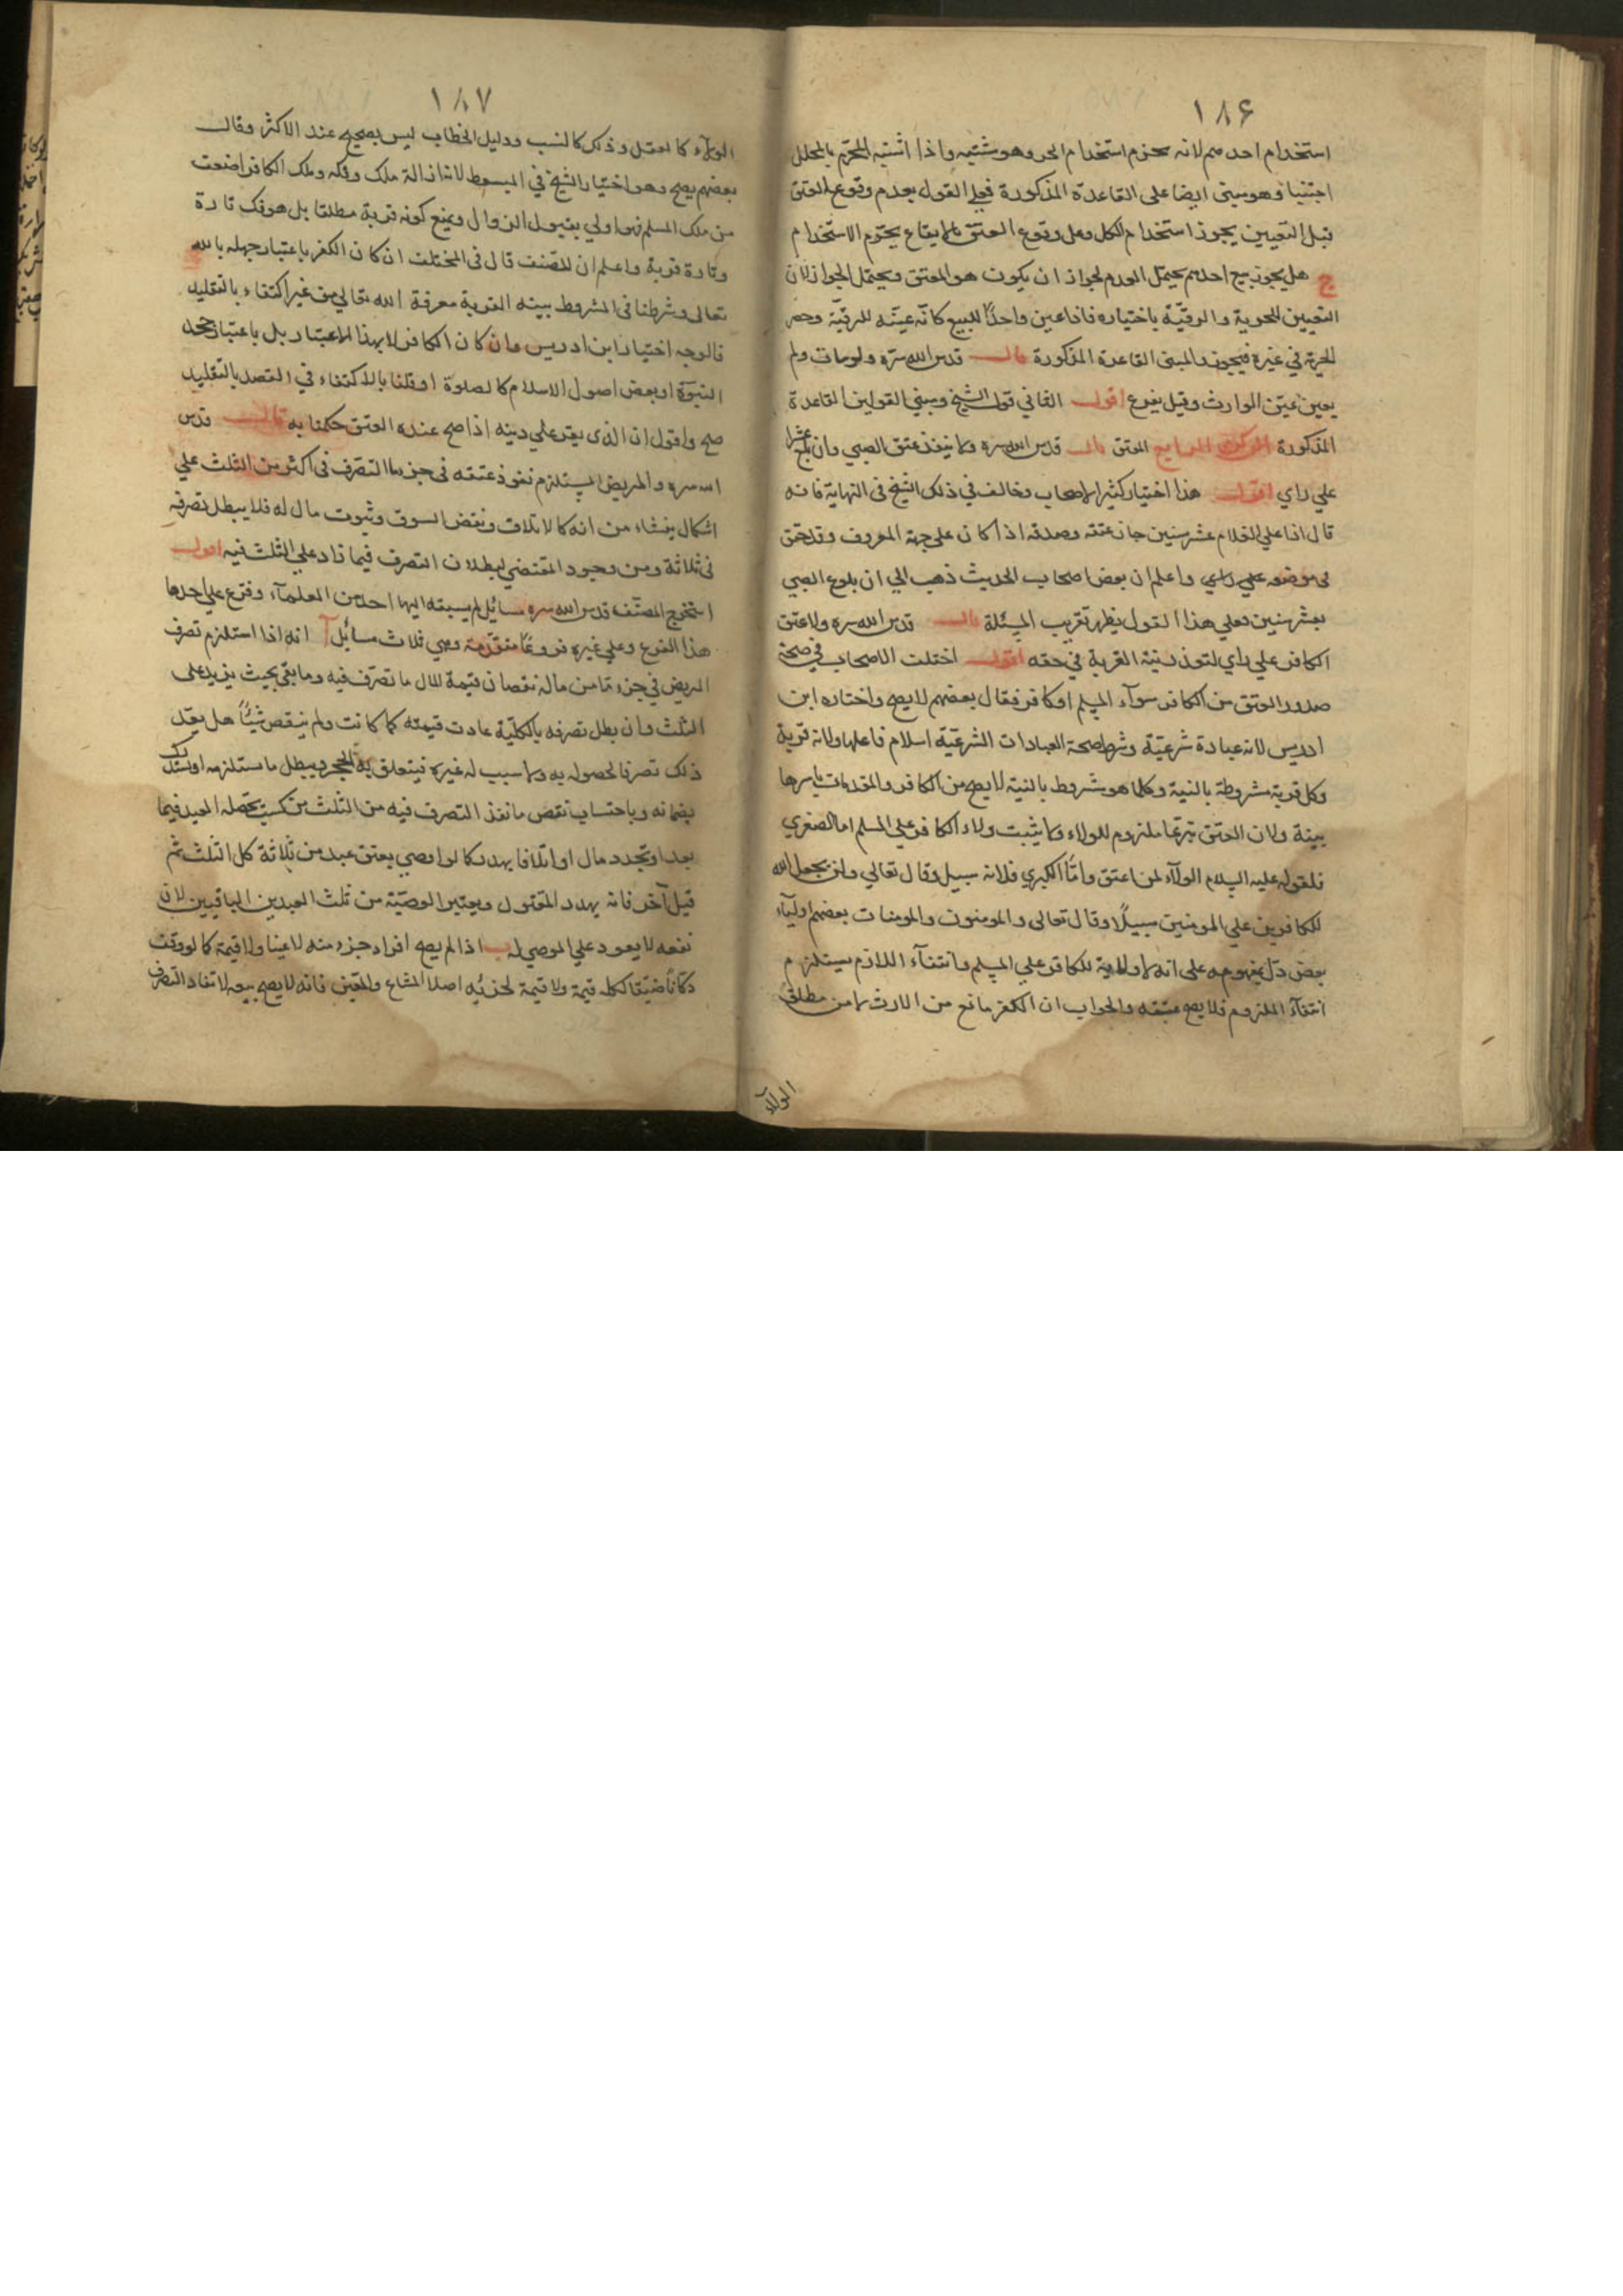 ١٨۶
استخدام احدهم لانه يحرم استخدام الحر وهو مشتبه واذا اشتبه المحرم بالمحلل
اجتنبا وهو مبنى ايضا على القاعدة المذكورة فعلى القول بعدم وقوع العتق
قبل التعيين يجوز استخدام الكل وعلى وقوع العتق بالايقاع يحرم الاستخدام
ج هل يجوز بيع احدهم يحتمل العدم لجواز ان يكون هو المعتق ويحتمل الجواز لان
التعيين للحرية والرقيّة باختياره فاذا عين واحدًا للبيع كانّه عيّنه للرقيّة وحصر
الحرية في غيره فيجوز والمبنى القاعدة المذكورة قال قدس الله سرّه ولو مات ولم
يعين عيّن الوارث وقيل يقرع اقول الثاني قول الشيخ ومبنى القولين القاعدة
المذكورة الركن الرابع العتق قال قدس الله سره ولا ينفذ عتق الصبي وان بلغ عشرا
علي راي اقول هذا اختيار كثير الاصحاب وخالف في ذلك الشيخ في النهاية فانه
قال اذا اتي علي الغلام عشر سنين جاز عتقه وصدقته اذا كان على جهة المعروف وتحقق
في موضعه علي راي واعلم ان بعض اصحاب الحديث ذهب الي ان بلوغ الصبي
بعشر سنين فعلي هذا القول يظهر تقريب المسئلة قال قدس الله سره ولا عتق
الكافر علي راي لتعذر نية القربة في حقه اقول اختلف الاصحاب في صحة
صدور العتق من الكافر سوآء المسلم او كافر فقال بعضهم لا يصح واختاره ابن
ادريس لانه عبادة شرعيّة وشرط صحة العبادات الشرعيّة اسلام فاعلها ولانه قربة
وكل قربة مشروطة بالنية وكلما هو مشروط بالنية لا يصح من الكافر والمقدمات باسرها
بينة ولان العتق تبرعا ملزوم للولاء ولا يثبت ولاء الكافر علي المسلم اما الصغري
فلقوله عليه السلام الولآء لمن اعتق وامّا الكبري فلانه سبيل وقال تعالي ولن يجعل الله
للكافرين علي المومنين سبيلًا وقال تعالى والمومنون والمومنات بعضهم اوليآء
بعض دلّ بمفهومه على انه لا ولاية للكافر علي المسلم وانتفآء اللازم يستلزم
انتفآء الملزوم فلا يصح عتقه والجواب ان الكفر مانع من الارث لا من مطلق
الولآء
١٨٧
الولآء كالقتل وذلك كالنسب ودليل الخطاب ليس بصحيح عند الاكثر وقال
بعضهم يصح وهو اختيار الشيخ في المبسوط لانه ازالة ملك وفكه وملك الكافر اضعف
من ملك المسلم فهو اولي بقبول الزوال ويمنع كونه قربة مطلقا بل هو فك تارة
وتارة قربة واعلم ان المصنف قال فى المختلف ان كان الكفر باعتبار جهله بالله
تعالى وشرطنا فى المشروط بنية القربة معرفة الله تعالي من غير اكتفاء بالتقليد
فالوجه اختيار ابن ادريس وان كان الكافر لا بهذا الاعتبار بل باعتبار جحد
النبوّة او بعض اصول الاسلام كالصلوة او قلنا بالاكتفاء في القصد بالتقليد
صح واقول ان الذى يقر علي دينه اذا صح عنده العتق حكمنا به قال قدس
الله سره والمريض المستلزم نفوذ عتقه فى جزء ما التصرف فى اكثر من الثلث علي
اشكال ينشاء من انه كالاتلاف ونقض السوق وثبوت مال له فلا يبطل تصرفه
فى ثلاثة ومن وجود المقتضي لبطلان التصرف فيما زاد علي الثلث فيه اقول
استخرج المصنّف قدس الله سره مسائل لم يسبقه اليها احد من العلمآء وفرّع علي احدها
هذا الفرع وعلي غيره فروعًا متقدّمة وهي ثلاث مسائل آ انه اذا استلزم تصرف
المريض في جزء مّا من ماله نقصان قيمة المال ما تصرّف فيه وما بقي بحيث يزيد على
الثلث وان بطل تصرفه بالكليّة عادت قيمته كما كانت ولم ينقص شيئًا هل يعدّ
ذلك تصرفا لحصوله به ولا سبب له غيره فيتعلق به الحجر ويبطل ما ستلزمه
بضمانه وباحتساب نقص ما نفذ التصرف فيه من الثلث من كسب يحصله العبد فيما
بعد او تجدد مال او اتلافا يهدر كما لو اوصي بعتق عبد من ثلاثة كل الثلث ثم
قتل آخر فانه يهدد المقتول ويعتبر الوصيّة من ثلث العبدين الباقيين لان
نفعه لا يعود علي الموصي له ب اذا لم يصح افراد جزء منه لا عينا ولا قيمة كما لو وقف
دكّانًا ضيّقا لكله قيمة ولا قيمة لجزئه اصلا المشاع والمعيّن فانه لا يصح بيعه لانتفاء التصرف